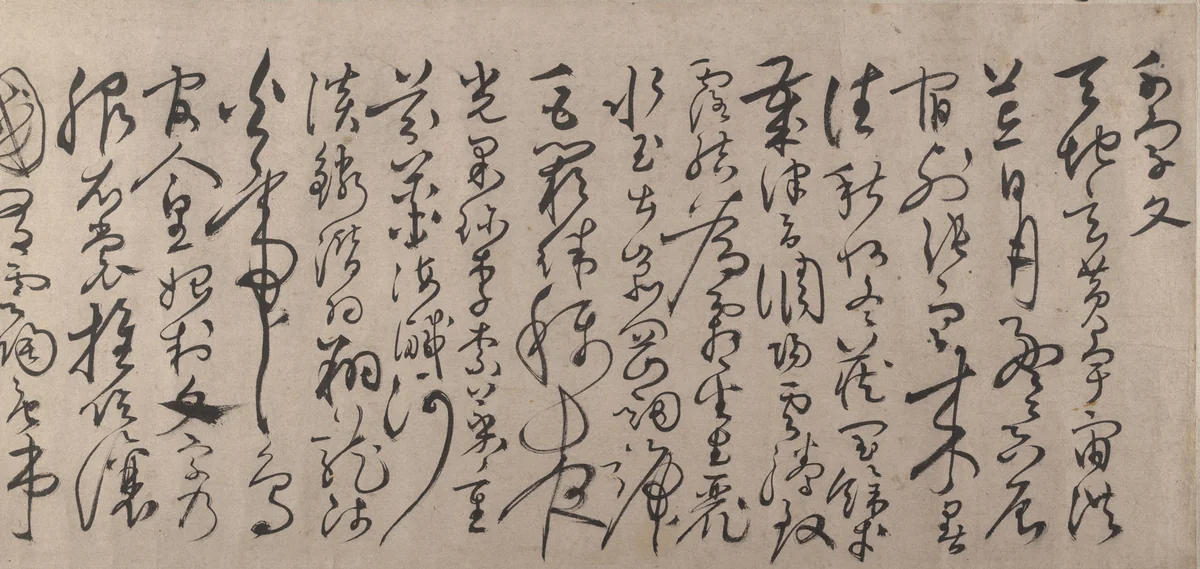 千字文
天地玄黃宇宙洪
荒日月盈昃辰
宿列張寒来暑
往秋收冬藏閏餘成
歲律呂調陽雲騰致
露結為霜金生麗
水玉出崑岡劍號
巨闕珠稱夜
光果珍李柰菜重
芥薑海鹹河
淡鱗潛羽翔龍師
火帝鳥
官人皇始制文字乃
服衣裳推位讓
國有虞陶唐弔